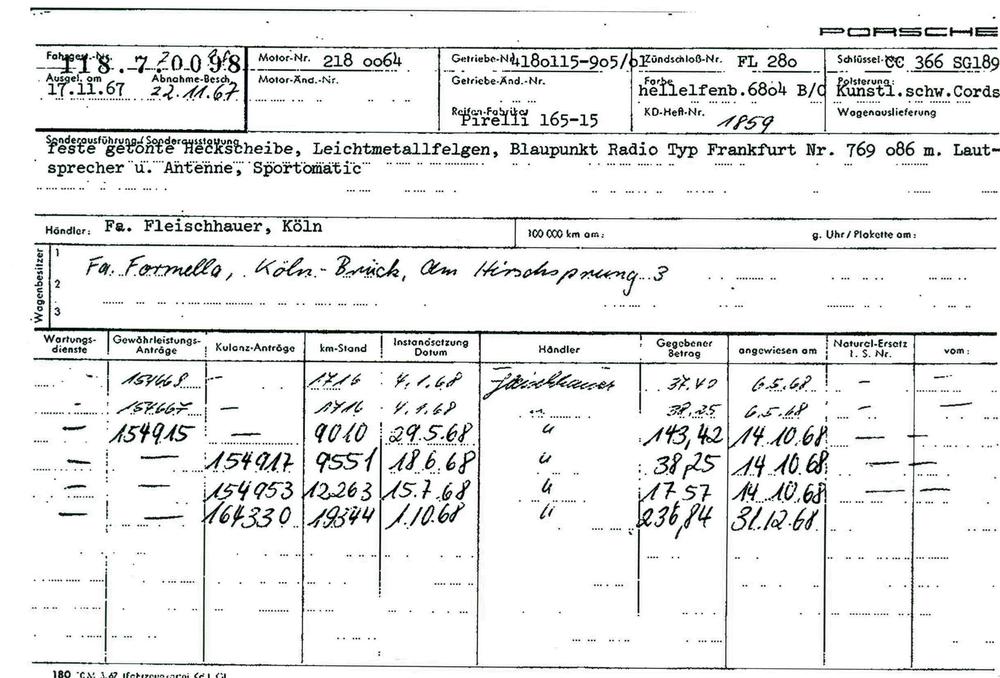 PORSCHE
Fahrgest.-Nr. 118.70098 Motor-Nr. 218 oo64 Getriebe-Nr. 418o115-9o5/o1 Zündschloß-Nr. FL 28o Schlüssel-Nr. CC 366 SG189
Ausgel. am Abnahme-Besch. Motor-Änd.-Nr. Getriebe-Änd.-Nr. Farbe Polsterung:
17.11.67 22.11.67 hellelfenb.68o4 B/C Kunstl.schw.Cords
Reifen-Fabrikat KD-Heft-Nr. 1859 Wagenauslieferung
Pirelli 165-15
Sonderausführung/Sonderausstattung
feste getönte Heckscheibe, Leichtmetallfelgen, Blaupunkt Radio Typ Frankfurt Nr. 769 o86 m. Laut-
sprecher u. Antenne, Sportomatic
Händler: Fa. Fleischhauer, Köln 100 000 km am: g. Uhr/Plakette am:
Wagenbesitzer
1
Fa. Formella, Köln-Brück, Am Hirschsprung 3
2
3
Wartungs- Gewährleistungs- Kulanz-Anträge km-Stand Instandsetzung Händler Gegebener angewiesen am Naturel-Ersatz vom:
dienste Anträge Datum Betrag l. S. Nr.
- 154668 - 1716 4.1.68 Fleischhauer 37.40 6.5.68 -
- 154667 - 1716 4.1.68 " 38,25 6.5.68 - -
- 154915 - 9010 29.5.68 " 143,42 14.10.68 - -
- - 154917 9551 18.6.68 " 38,25 14.10.68 - -
- - 154953 12.263 15.7.68 " 17.57 14.10.68 - -
- - 164330 19344 1.10.68 " 236,84 31.12.68
180